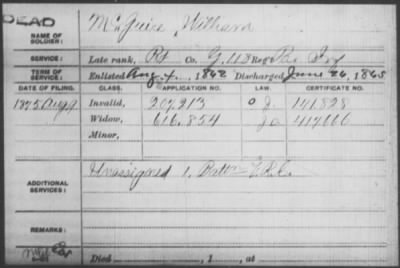 DEAD
McGuire, William
NAME OF SOLDIER:
SERVICE: Late rank, Pvt Co. G, 112 Reg't Pa Inf
TERM OF SERVICE: Enlisted Aug 4, 1862 Discharged June 26, 1865
DATE OF FILING. CLASS. APPLICATION NO. LAW. CERTIFICATE NO.
1875 Aug 9 Invalid, 207,213 141,828
Widow, 616,854
Minor,
ADDITIONAL SERVICES: Unassigned
REMARKS:
Died , 1 , at